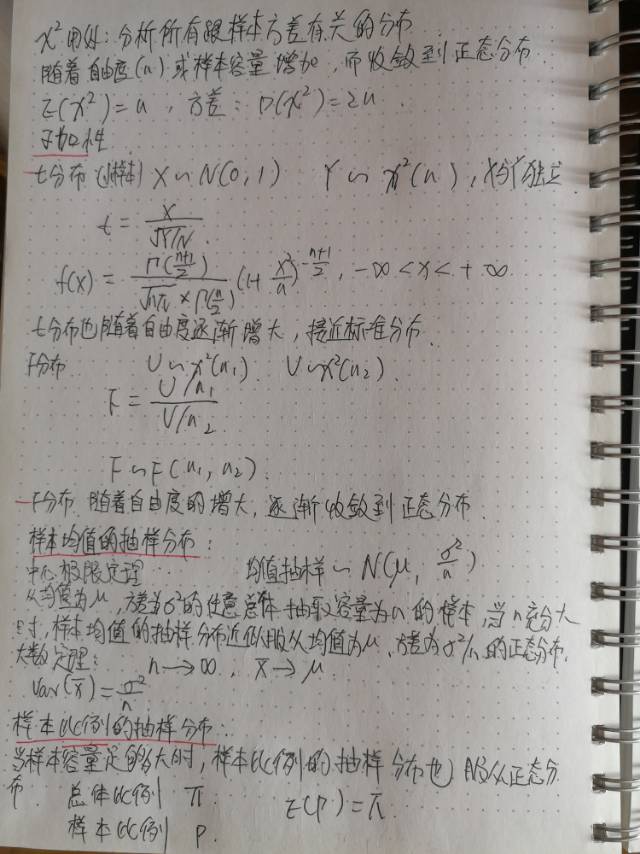 x²用处：分析所有跟样本方差有关的分布
随着自由度(n)或样本容量增加，而收敛到正态分布
E(x²)=n，方差：D(x²)=2n.
可加性
t分布(小样本) X~N(0,1) Y~x²(n)，X与Y独立.
t = X/√Y/N.
f(x) = Γ(n+1/2)/√nπ×Γ(n/2) (1+x²/n)^-n+1/2, -∞<x<+∞.
t分布也随着自由度逐渐增大，接近标准分布.
F分布 U~x²(n₁) V~x²(n₂).
F = U/n₁ / V/n₂
F~F(n₁,n₂).
F分布 随着自由度的增大，逐渐收敛到正态分布.
样本均值的抽样分布：
中心极限定理 均值抽样~N(μ, σ²/n)
从均值为μ，方差为σ²的任意总体抽取容量为n的样本，当n充分大
时，样本均值的抽样分布近似服从均值为μ、方差为σ²/n的正态分布.
大数定理： n→∞, x̄→μ
var(x̄)=σ²/n
样本比例的抽样分布：
当样本容量足够大时，样本比例的抽样分布也服从正态分
布 总体比例 π E(p)=π.
样本比例 p.